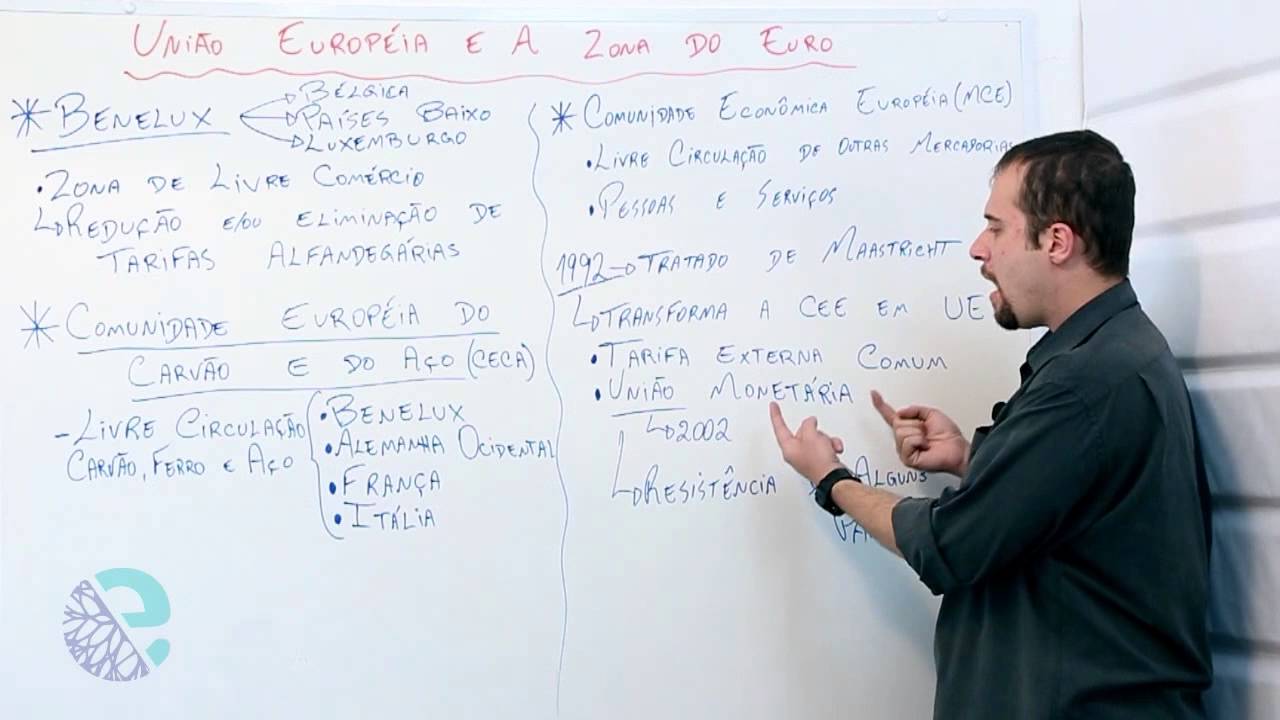 UNIÃO EUROPÉIA E A ZONA DO EURO
* BENELUX
BÉLGICA
PAÍSES BAIXO
LUXEMBURGO
• ZONA DE LIVRE COMÉRCIO
REDUÇÃO E/OU ELIMINAÇÃO DE
TARIFAS ALFANDEGÁRIAS
* COMUNIDADE EUROPÉIA DO
CARVÃO E DO AÇO (CECA)
- LIVRE CIRCULAÇÃO
CARVÃO, FERRO E AÇO
• BENELUX
• ALEMANHA OCIDENTAL
• FRANÇA
• ITÁLIA
* COMUNIDADE ECONÔMICA EUROPÉIA (MCE)
• LIVRE CIRCULAÇÃO DE OUTRAS MERCADORIAS
• PESSOAS E SERVIÇOS
1992 → TRATADO DE MAASTRICHT
TRANSFORMA A CEE EM UE
• TARIFA EXTERNA COMUM
• UNIÃO MONETÁRIA
2002
RESISTÊNCIA ALGUNS